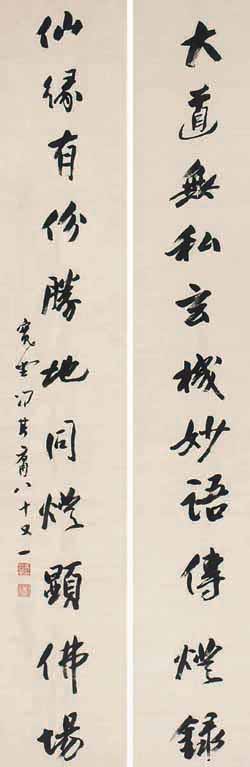 大道無私玄機妙語傳燈錄
仙緣有份勝地同燈顯佛場
寬堂馮其庸八十又一